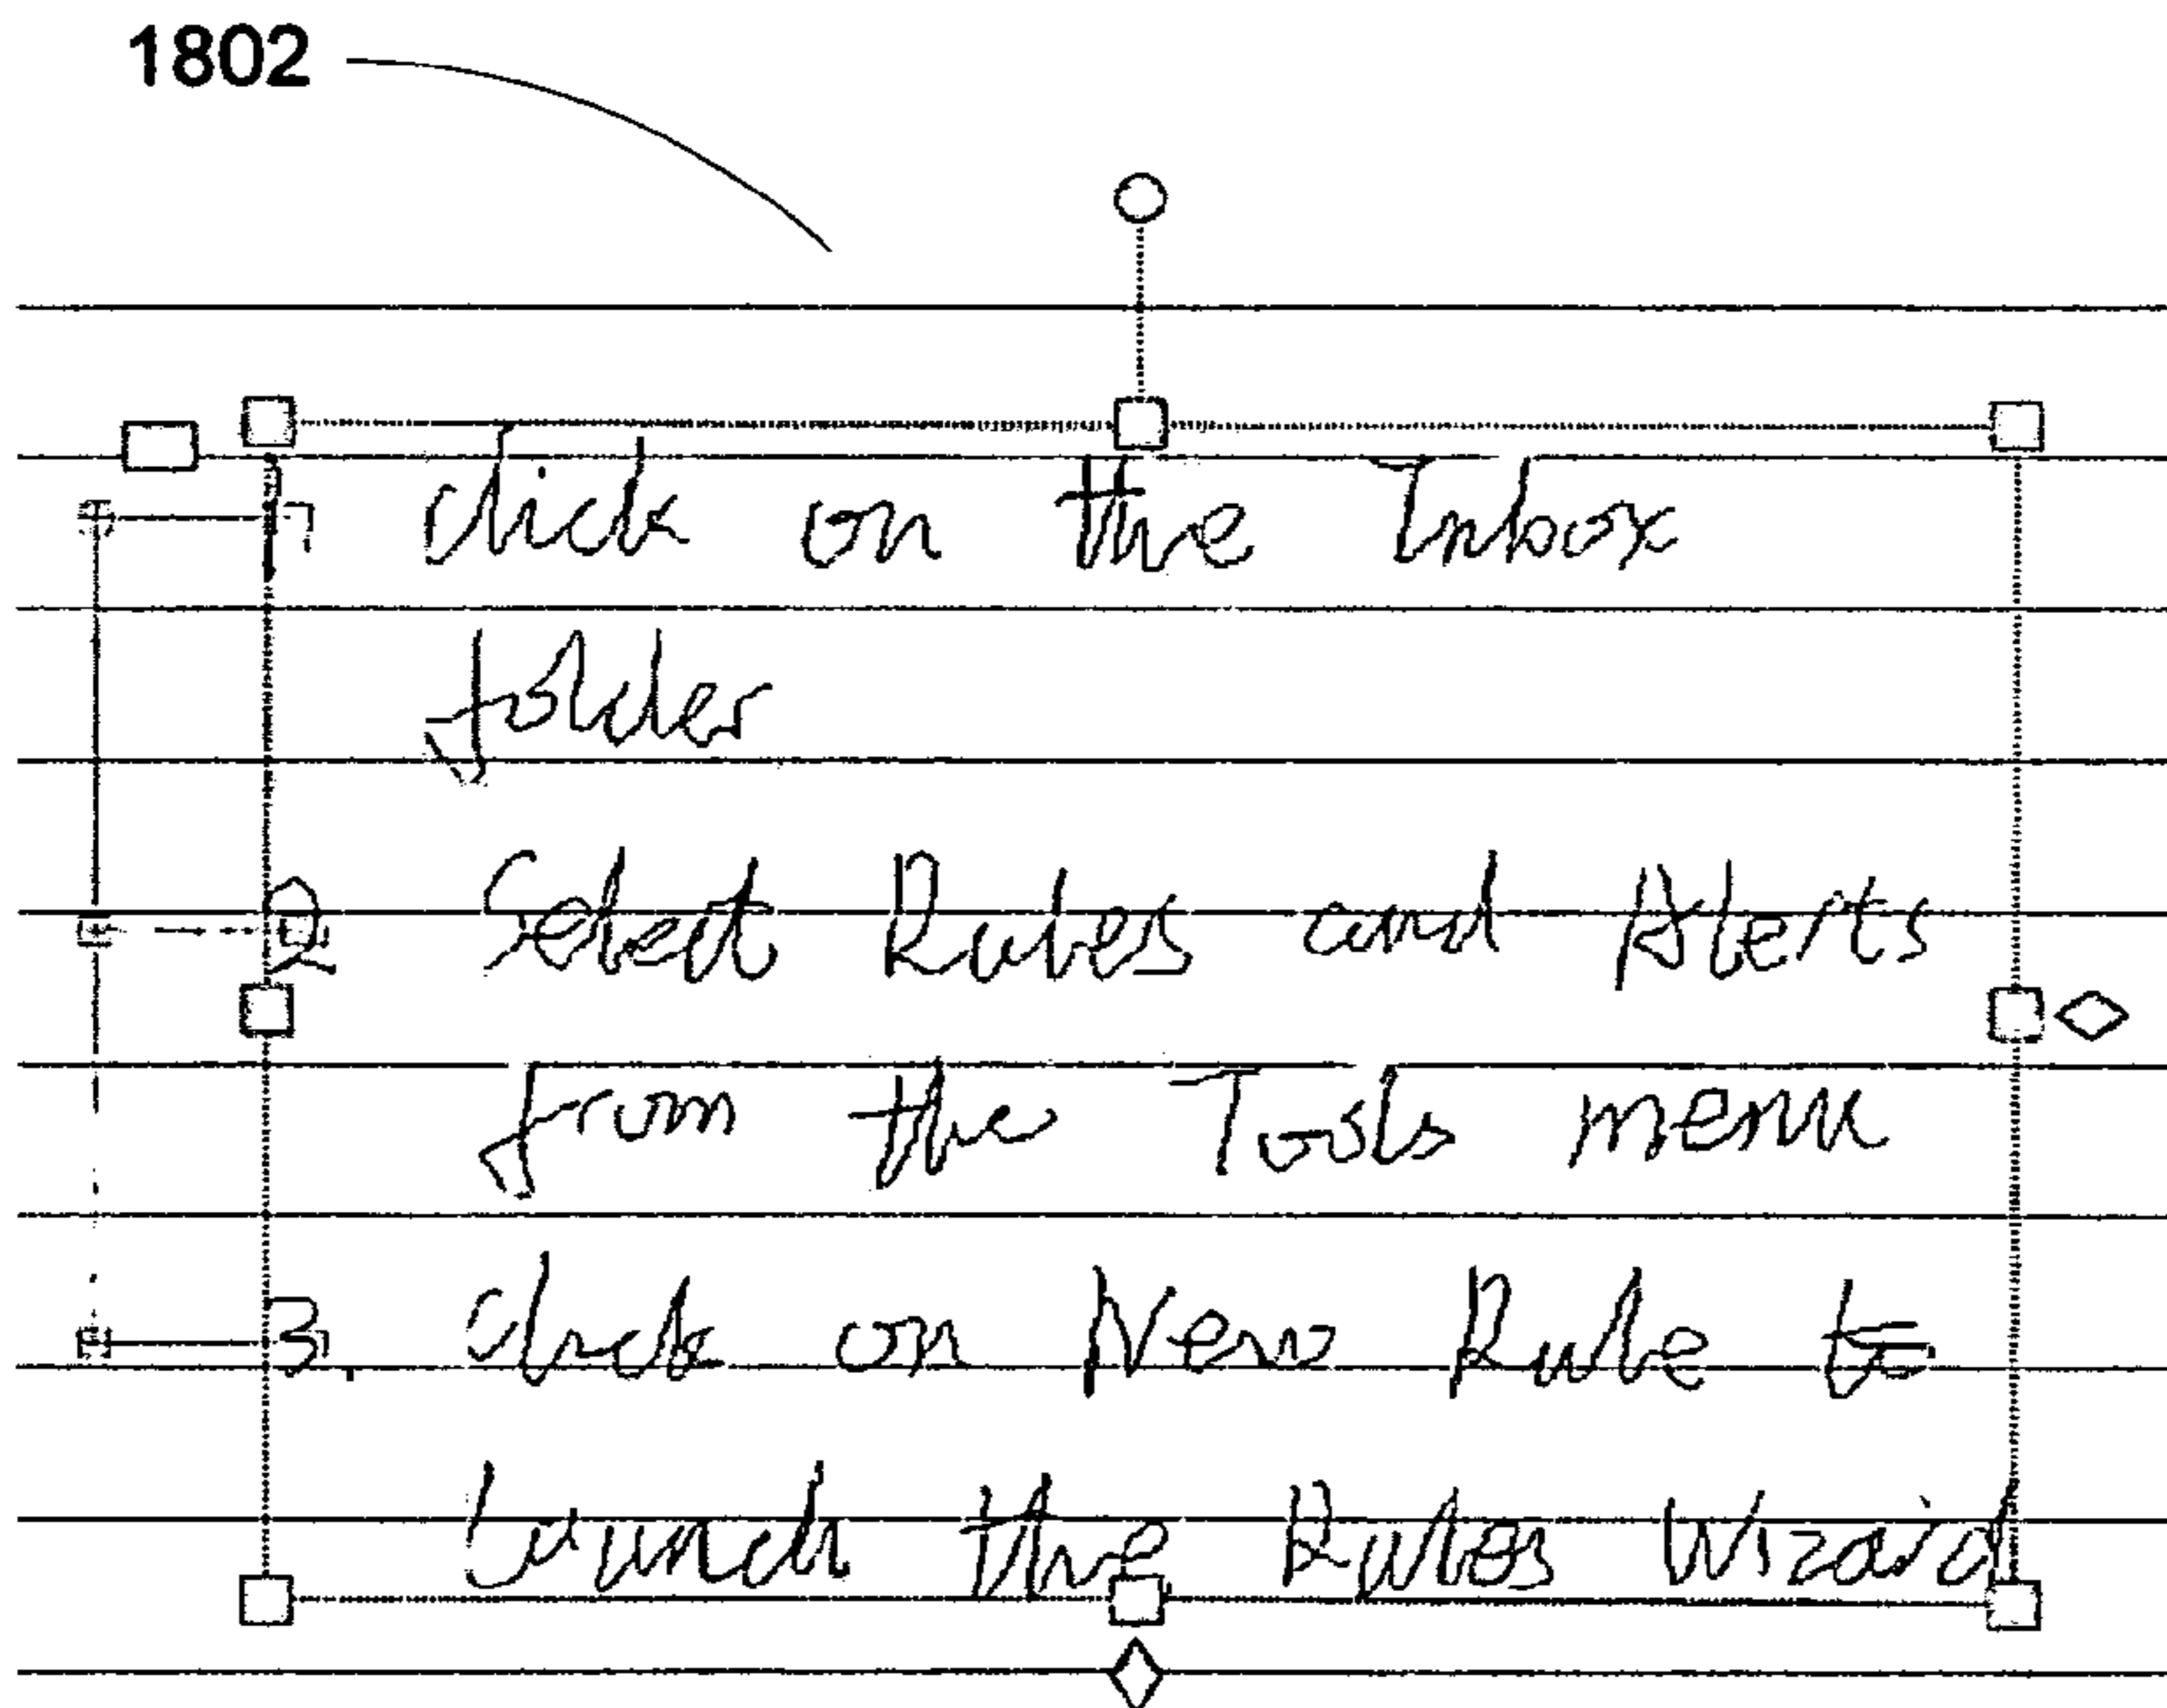 1802
1 click on the Inbox
folder
2 Select Rules and Alerts
from the Tools menu
3. Click on New Rule to
launch the Rules Wizard